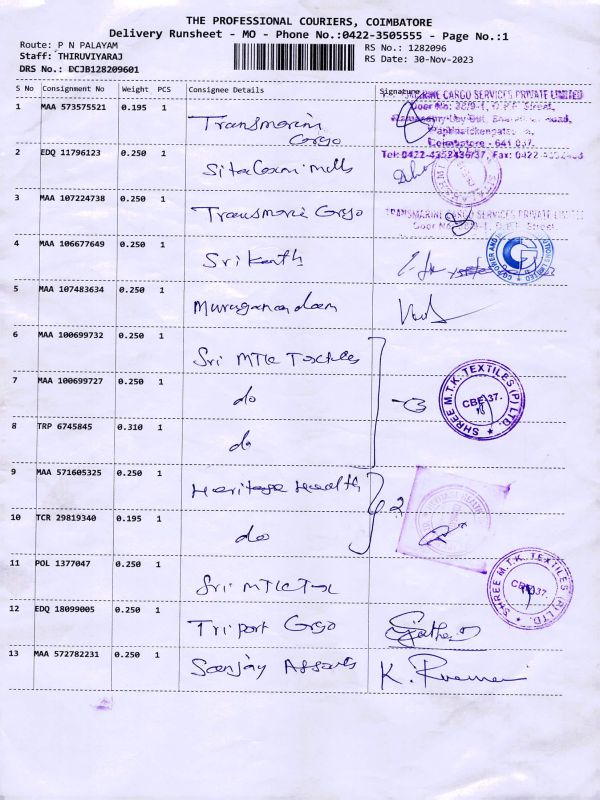 THE PROFESSIONAL COURIERS, COIMBATORE
Delivery Runsheet - MO - Phone No.:0422-3505555 - Page No.:1
Route: P N PALAYAM
Staff: THIRUVIYARAJ
DRS No.: DCJB128209601
RS No.: 1282096
RS Date: 30-Nov-2023
S No Consignment No Weight PCS Consignee Details Signature
TRANSMARINE CARGO SERVICES PRIVATE LIMITED
1 MAA 573575521 0.195 1 Transmarin Cargo
Coimbatore - 641 037.
Tel: 0422-4352436/37, Fax: 0422-
2 EDQ 11796123 0.250 1 Sitalaxmi mills
3 MAA 107224738 0.250 1 Transmarie Cargo
TRANSMARINE CARGO SERVICES PRIVATE LIMITED
4 MAA 106677649 0.250 1 Srikanth
5 MAA 107483634 0.250 1 Muruganandam
6 MAA 100699732 0.250 1 Sri MTK Textiles
7 MAA 100699727 0.250 1 do
-3
SHREE M.T.K. TEXTILES (P) LTD.
CBE-37.
8 TRP 6745845 0.310 1 do
9 MAA 571605325 0.250 1 Heritage Health
2
10 TCR 29819340 0.195 1 do
11 POL 1377047 0.250 1 Sri MTK Tex
SHREE M.T.K. TEXTILES (P) LTD.
CBE-37.
12 EDQ 18099005 0.250 1 Triport Cargo
13 MAA 572782231 0.250 1 Sanjay Assorts